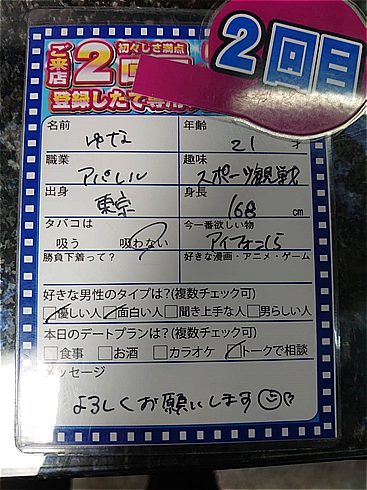 2回目
ご来店
初々しさ満点
2回
登録したて
名前 ゆな 年齢 21才
職業 アパレル 趣味 スポーツ観戦
出身 東京 身長 168cm
タバコは 今一番欲しい物
吸う 吸わない アイフォン15
勝負下着って? 好きな漫画・アニメ・ゲーム
好きな男性のタイプは?(複数チェック可)
優しい人 面白い人 聞き上手な人 男らしい人
本日のデートプランは?(複数チェック可)
食事 お酒 カラオケ トークで相談
メッセージ
よろしくお願いします